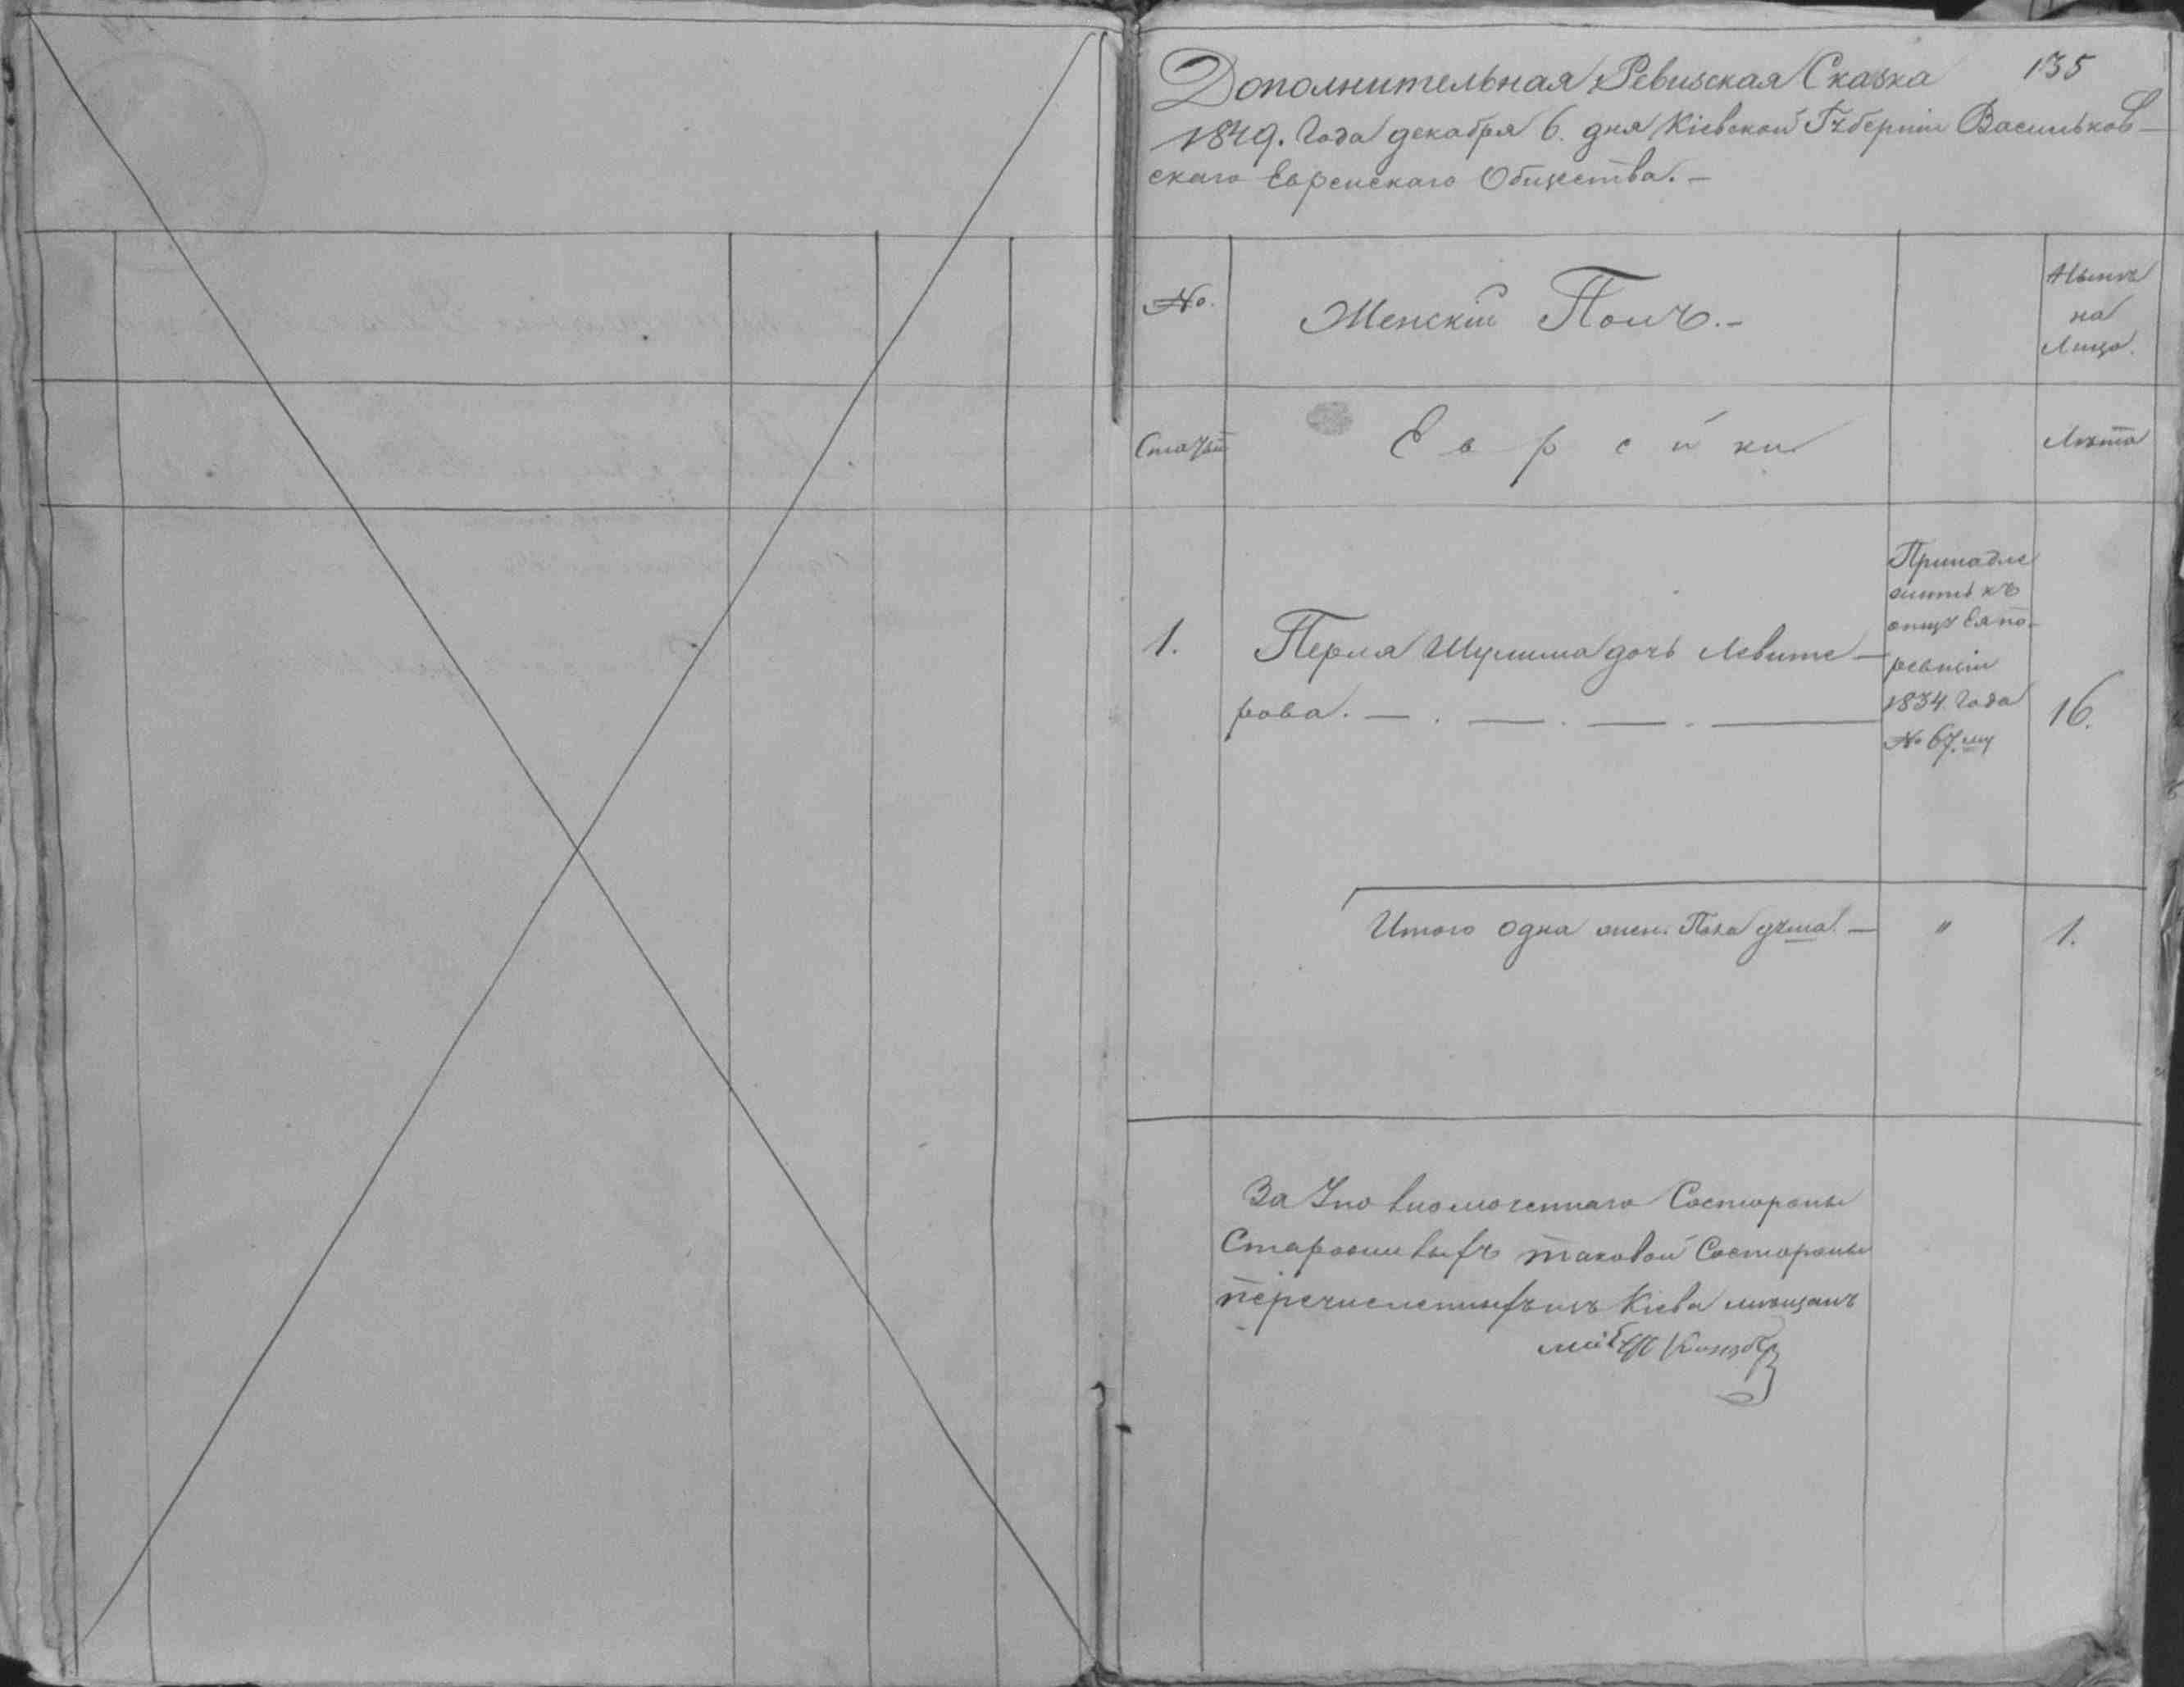 135
Дополнительная Ревизская Сказка
1849. Года декабря 6. дня Кіевской Губерніи Васильков-
скаго Еврейскаго Общества. –
No.
Женскій Полъ. –
Нынѣ
на
Лицо.
Статьи
Еврейки
Лѣта
1.
Перля Шулима дочь Левите –
рова. –
Принадле
житъ къ
отцу Ея по
ревизіи
1834. Года
No 67.му
16.
Итого одна жен. Пола душа. –
"
1.
За Уповномоченнаго Состороны
Старо таковой Состороны
перечисленныхъ изъ Кіева мѣщанъ